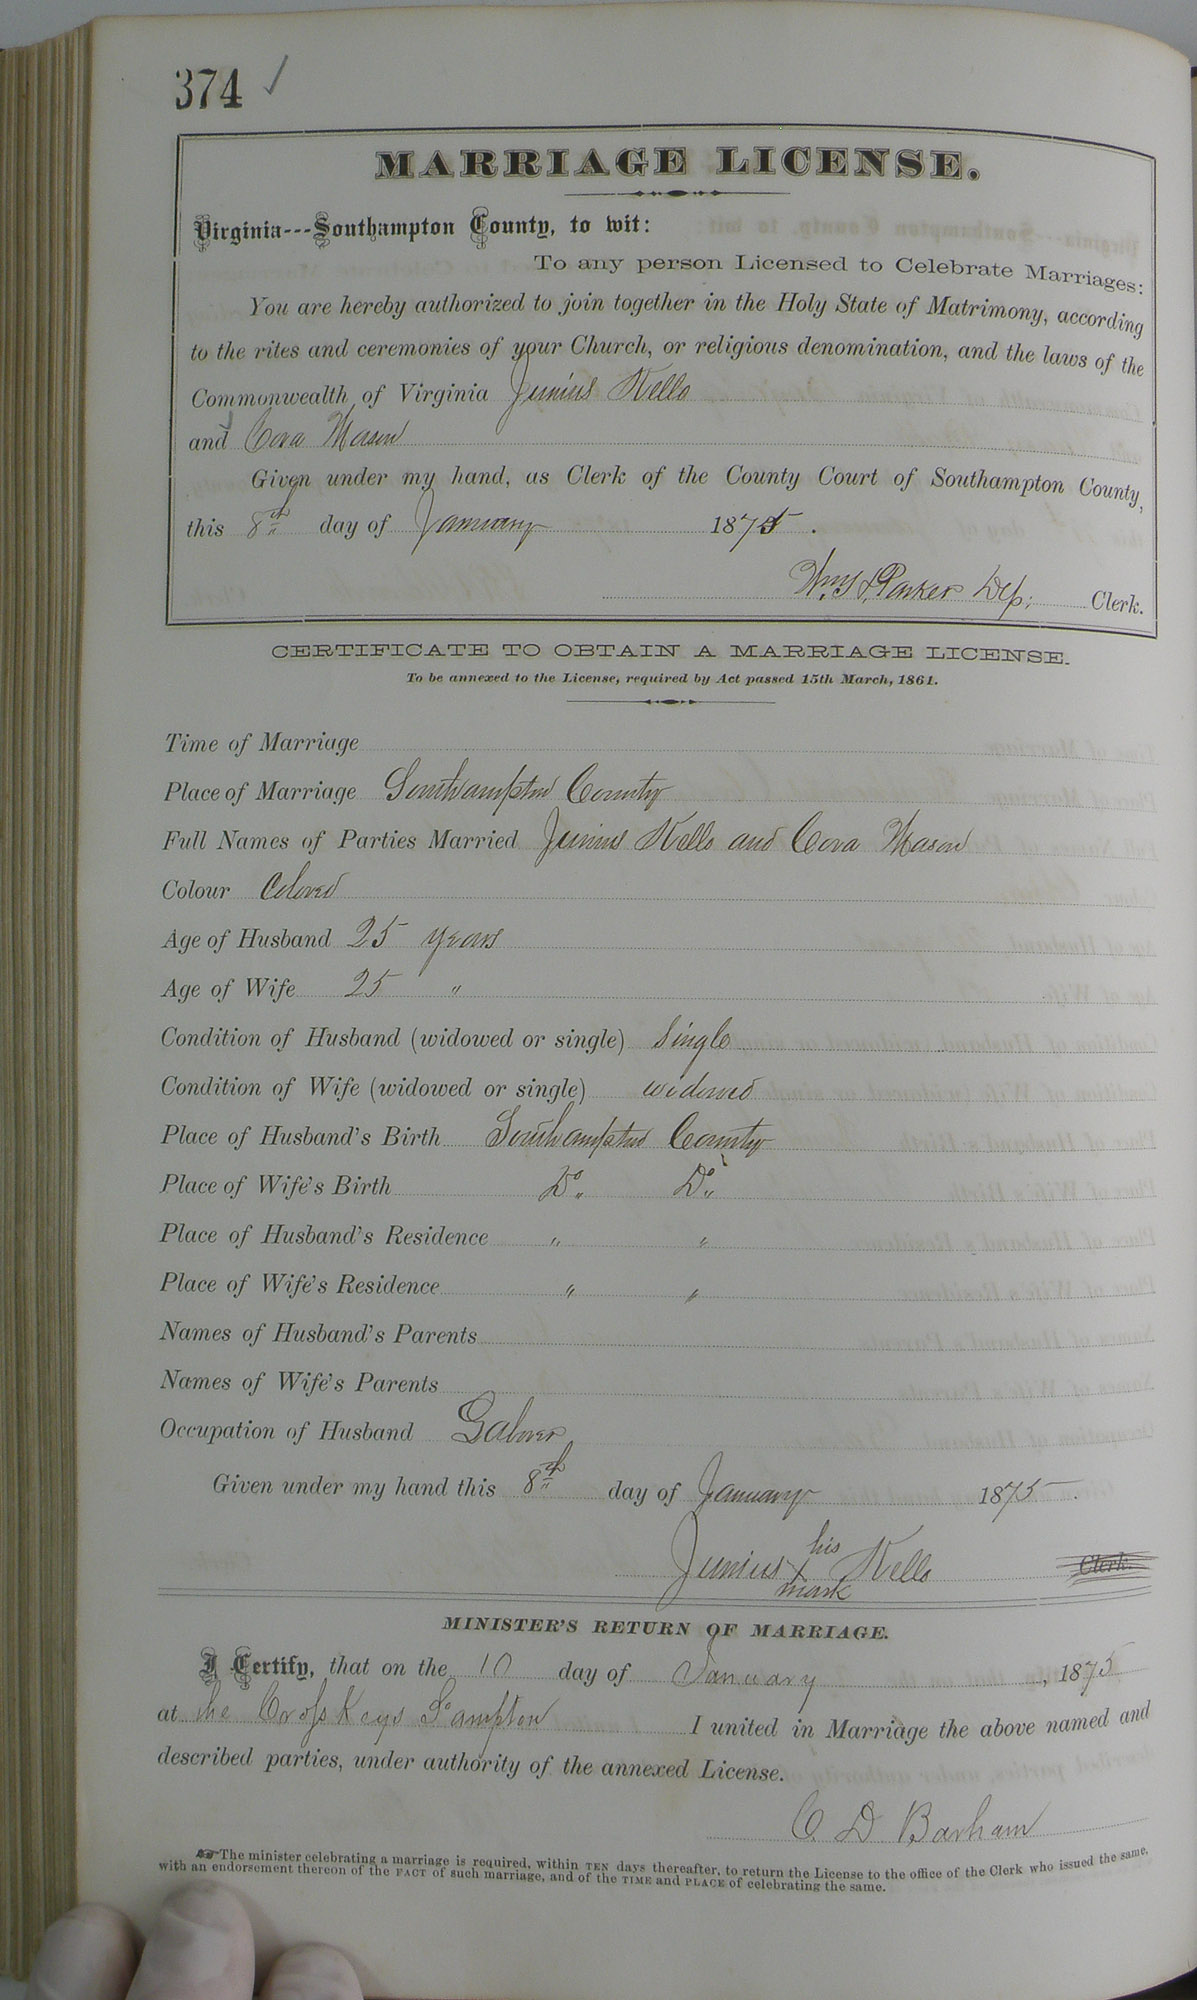 374 ✓
MARRIAGE LICENSE.
Virginia---Southampton County, to wit:
To any person Licensed to Celebrate Marriages:
You are hereby authorized to join together in the Holy State of Matrimony, according
to the rites and ceremonies of your Church, or religious denomination, and the laws of the
Commonwealth of Virginia Junius Kello
and Cora Mason
Given under my hand, as Clerk of the County Court of Southampton County,
this 8th day of January 1875.
Wm S Parker Dep: Clerk.
CERTIFICATE TO OBTAIN A MARRIAGE LICENSE.
To be annexed to the License, required by Act passed 15th March, 1861.
Time of Marriage
Place of Marriage Southampton County
Full Names of Parties Married Junius Kello and Cora Mason
Colour Colored
Age of Husband 25 years
Age of Wife 25 "
Condition of Husband (widowed or single) single
Condition of Wife (widowed or single) widowed
Place of Husband's Birth Southampton County
Place of Wife's Birth Do Do
Place of Husband's Residence " "
Place of Wife's Residence " "
Names of Husband's Parents
Names of Wife's Parents
Occupation of Husband Labourer
Given under my hand this 8th day of January 1875.
his
Junius X Kello Clerk.
mark
MINISTER'S RETURN OF MARRIAGE.
I Certify, that on the 10 day of January, 1875
at the Cross Keys S°ampton I united in Marriage the above named and
described parties, under authority of the annexed License.
C D Barham
☞ The minister celebrating a marriage is required, within TEN days thereafter, to return the License to the office of the Clerk who issued the same,
with an endorsement thereon of the FACT of such marriage, and of the TIME and PLACE of celebrating the same.